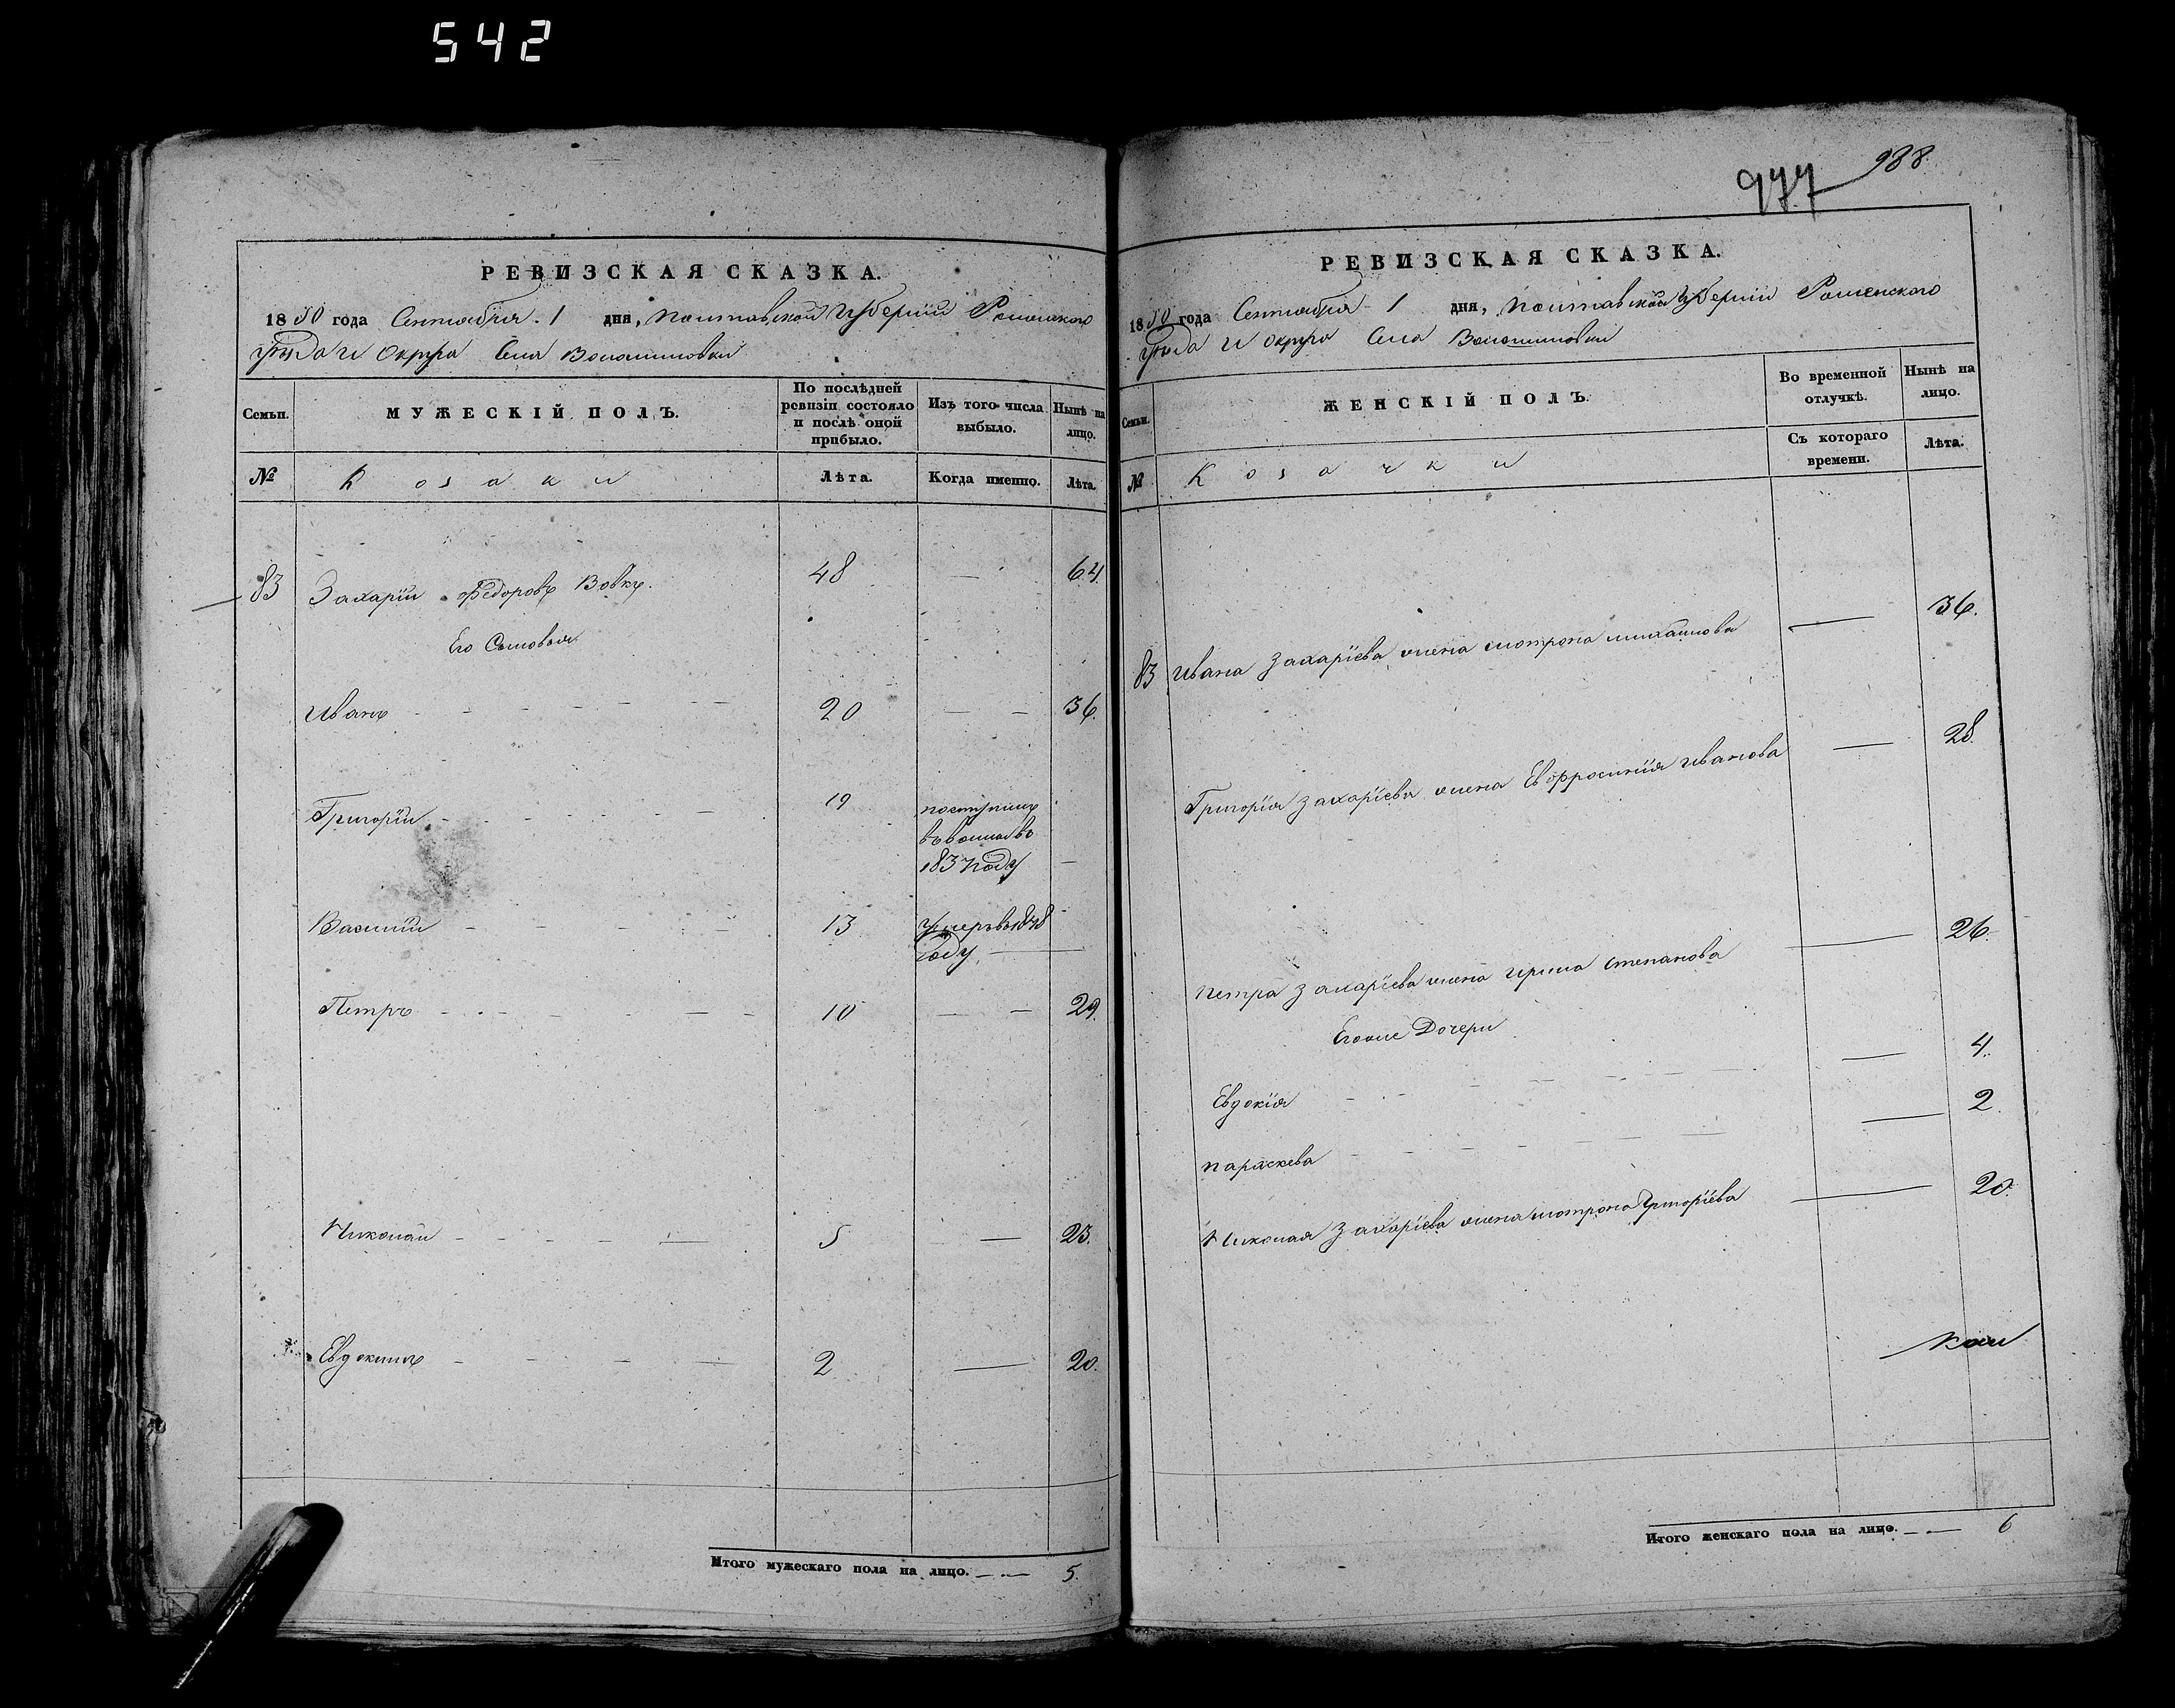 542
РЕВИЗСКАЯ СКАЗКА.
1850 года Сентября 1 дня, Полтавской Губерніи Роменскаго
уѣзда и Округа Села Волошиновки
Семьи.
МУЖЕСКІЙ ПОЛЪ.
По послѣдней ревизіи состояло и послѣ оной прибыло.
Изъ того числа выбыло.
Нынѣ на лицо.
№
Козаки
Лѣта.
Когда именно.
Лѣта.
83 Захарій Федоровъ Вовкъ. 48 — 64.
Его Сыновья
Иванъ 20 — — 36.
Григорій 19 поступилъ
въ
183 году —
Василій 13 Умеръ въ 1848
году —
Петръ 10 — — 29.
Николай 5 — 23.
Евдокимъ 2 — 20.
Итого мужескаго пола на лицо. 5.
977 988
РЕВИЗСКАЯ СКАЗКА.
1850 года Сентября 1 дня, Полтавской Губерніи Роменского
уѣзда и Округа Села Волошиновки
Семьи.
ЖЕНСКІЙ ПОЛЪ.
Во временной отлучкѣ.
Нынѣ на лицо.
Съ котораго времени.
Лѣта.
№
Козачки
83 Ивана Захаріева жена Мотрона Михайлова — 36.
Григорія Захаріева жена Евфросинія Иванова — 28.
Петра Захаріева жена Ирина Степанова — 26.
Егоже Дочери
Евдокія — 4.
Параскева — 2.
Николая Захаріева жена Мотрона Григоріева — 20.
Итого женскаго пола на лицо. 6